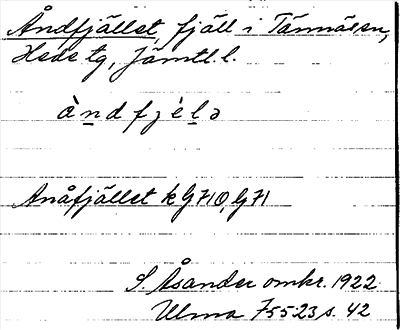 Åndfjället, fjäll i Tännäsen,
Hede tg, Jämtl. l.
àndfjélə
Anåfjället k G 710, G 71
S. Åsander omkr. 1922
Ulma 755:23 s. 42